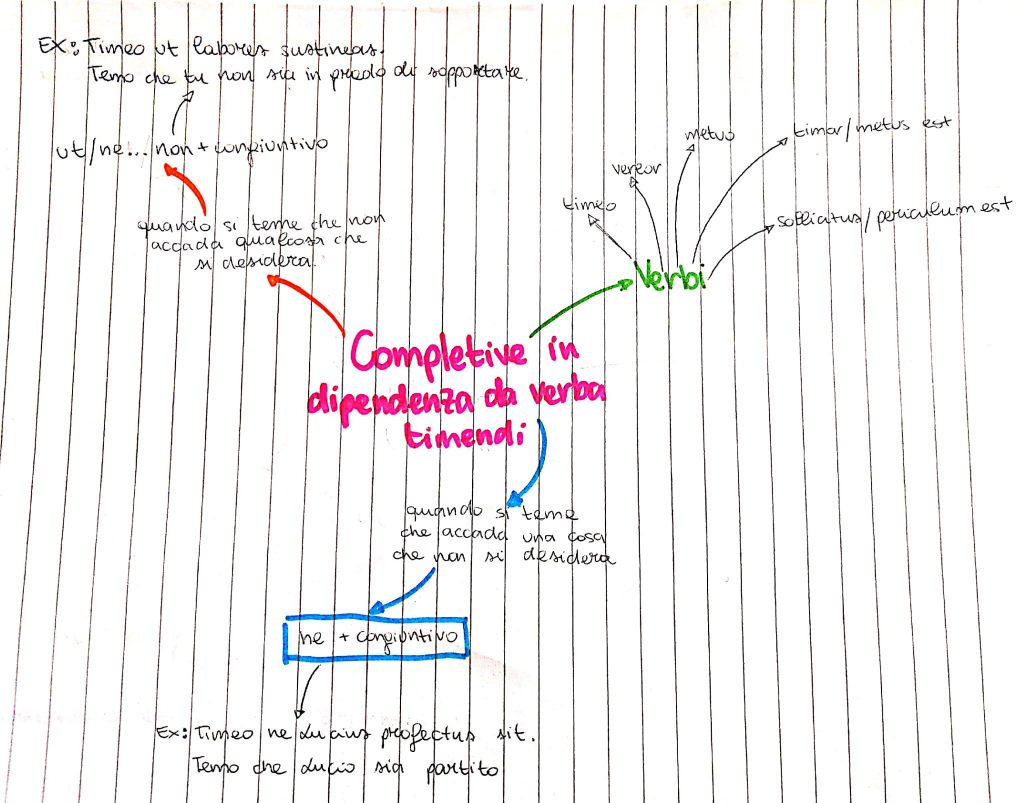 EX: Timeo ut labores sustineas.
Temo che tu non sia in predo di sopportare.
ut/ne... non + congiuntivo
quando si teme che non
accada qualcosa che
si desidera.
timeo
vereor
metuo
timor/metus est
sollicitus/periculum est
Verbi
Completive in
dipendenza da verba
timendi
quando si teme
che accada una cosa
che non si desidera
ne + congiuntivo
Ex: Timeo ne Lucius profectus sit.
Temo che Lucio sia partito